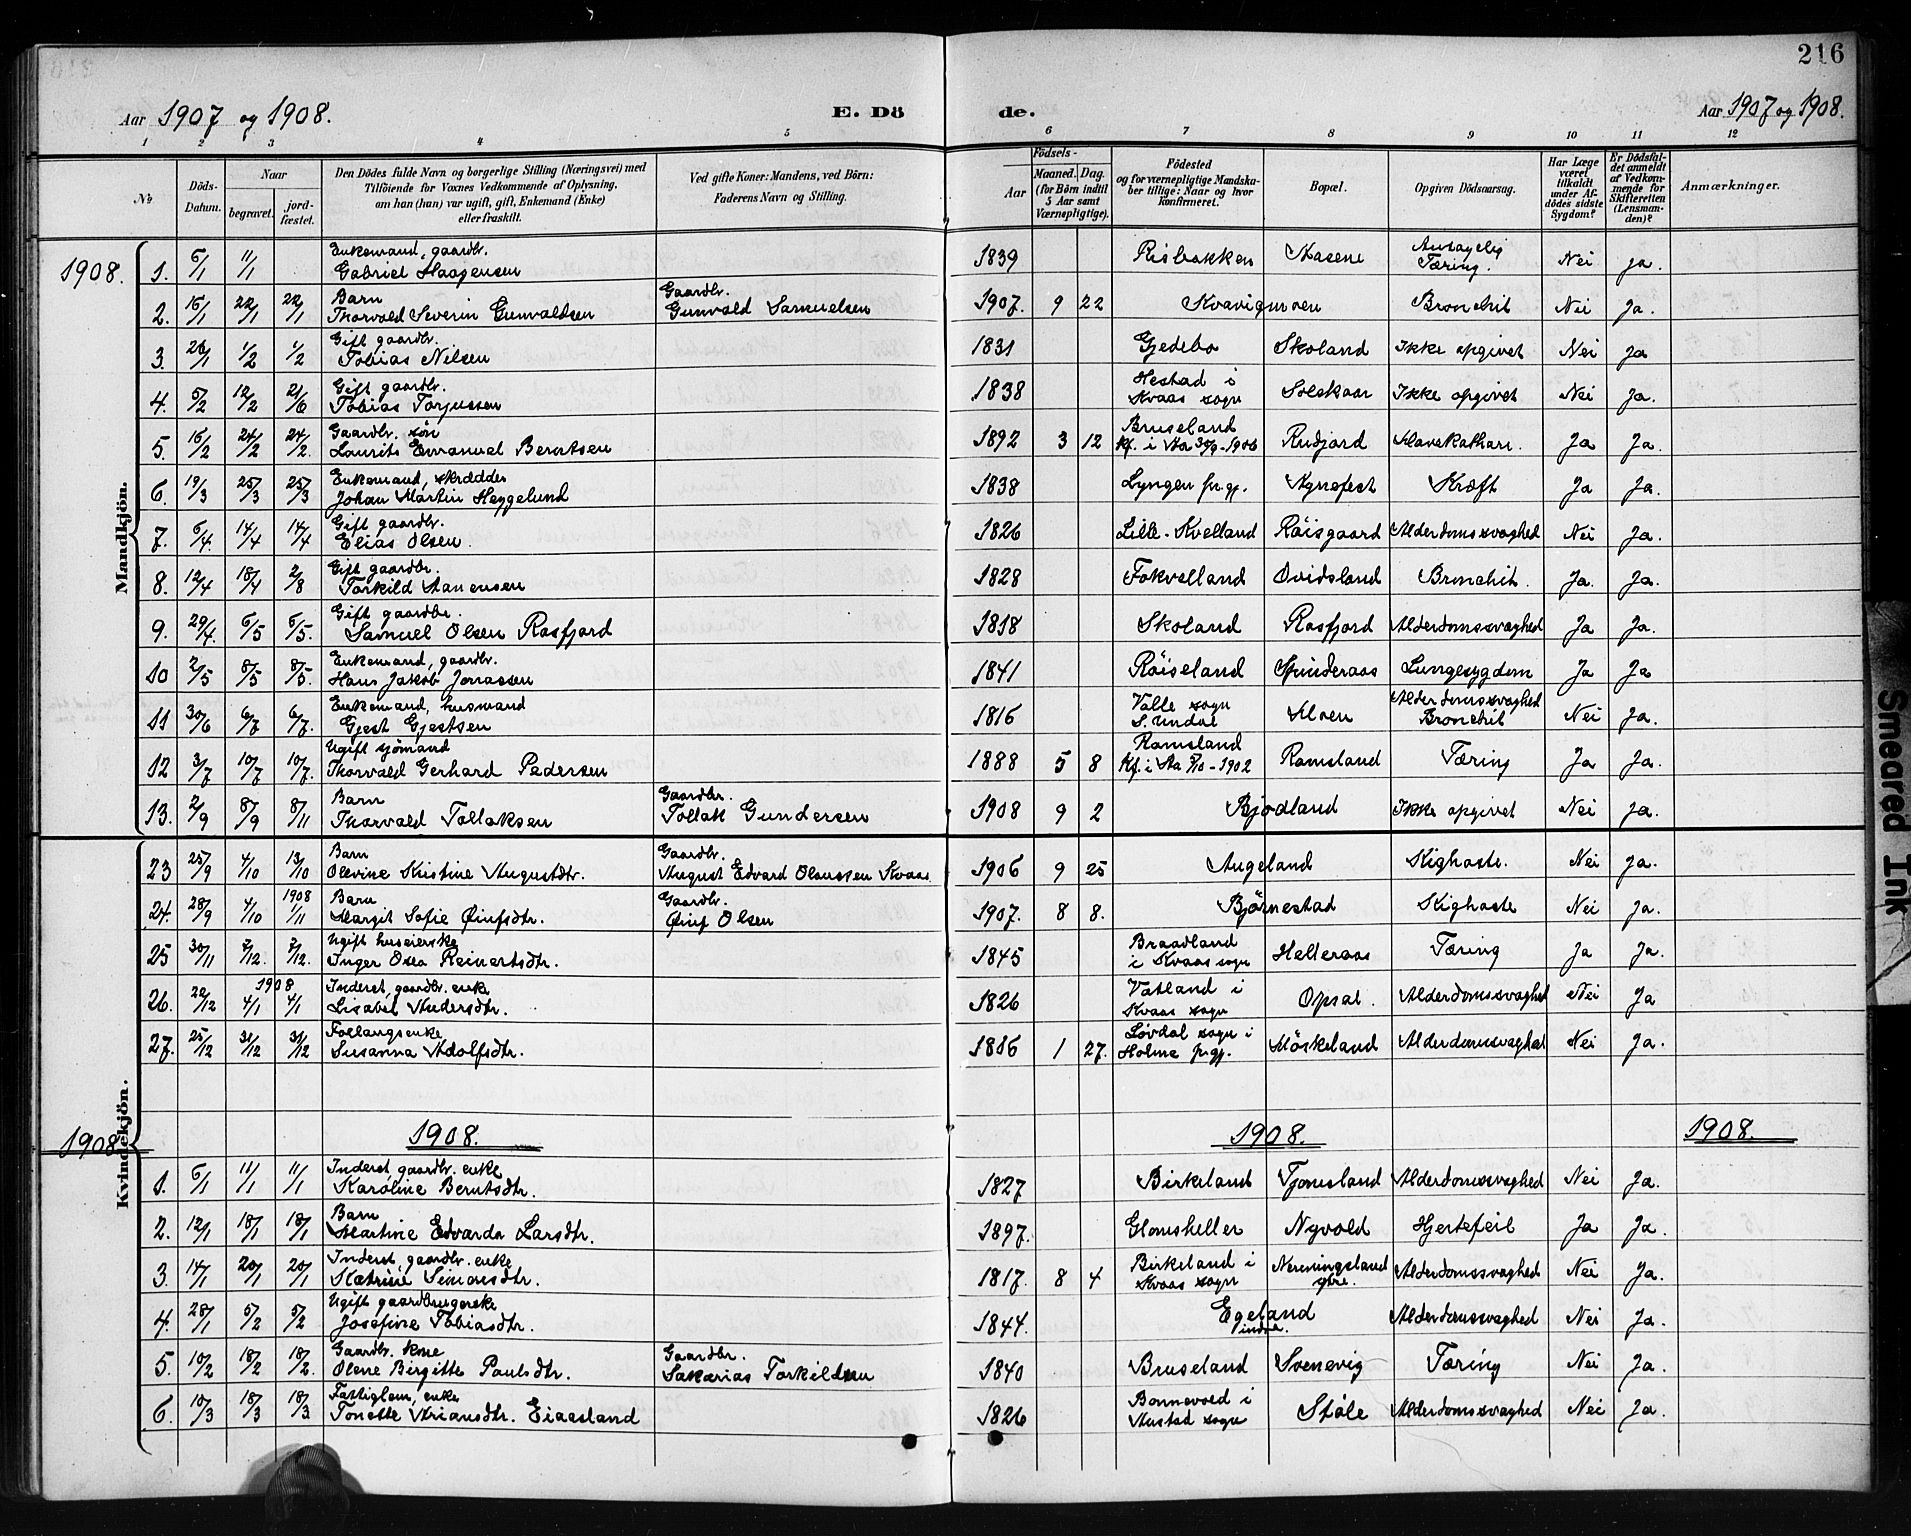 216
Aar 1907 og 1908. E. Dö de. Aar 1907 og 1908.
1 2 3 4 5 6 7 8 9 10 11 12
№ Döds-Datum. Naar begravet. jord-fæstet. Den Dödes fulde Navn og borgerlige Stilling (Næringsvei) med Tilföiende for Voxnes Vedkommende af Oplysning, om han (hun) var ugift, gift, Enkemand (Enke) eller fraskilt. Ved gifte Koner: Mandens, ved Börn: Faderens Navn og Stilling. Födsels- Aar Maaned. Dag. (for Börn indtil 5 Aar samt Værnepligtige). Födested og for værnepligtige Mandska-ber tillige: Naar og hvor konfirmeret. Bopæl. Opgiven Dödsaarsag. Har Læge været tilkaldt under Af-dödes sidste Sygdom? Er Dödsfal-det anmeldt af Vedkom-mende for Skifteretten (Lensman-den)? Anmærkninger.
Mandkjön.
1908.
1. 6/1 11/1 Enkemand, gaardbr. Gabriel Haagensen 1839 Risbakken Aasene Antagelig Tæring. Nei Ja.
2. 15/1 22/1 22/1 Barn Thorvald Severin Gunvaldsen Gaardbr. Gunvald Samuelsen 1907. 9 22 Kvavigmoen Bronchit Nei Ja.
3. 26/1 1/2 1/2 Gift gaardbr. Tobias Nilsen 1831 Gjedebo Skoland Ikke opgivet Nei Ja
4. 5/2 12/2 21/6 Gift gaardbr. Tobias Torjussen 1838 Hestad i Kvaas sogn Solskaar Ikke opgivet Nei Ja.
5. 16/2 24/2 24/2. Gaardbr. søn Laurits Emanuel Berntsen 1892 3 12 Bruseland kf. i Aa 30/9-1906 Rudjord Mavekathar. Ja Ja.
6. 19/3 25/3 25/3 Enkemand, skrædder Johan Martin Heggelund 1838 Lyngen pr.gj. Agnefest Kræft Ja Ja.
7. 6/4. 14/4 14/4 Gift gaardbr. Elias Olsen. 1826 Lille-Kvelland Röisgaard Alderdomssvaghed Nei Ja.
8. 12/4 18/4 2/8 Gift gaardbr. Torkild Aanensen 1828 Fokvelland Ovidsland Bronchit. Ja. Ja.
9. 29/4. 6/5 6/5. Gift gaardbr. Samuel Olsen Rosfjord 1818 Skoland Rosfjord Alderdomssvaghed Ja Ja.
10 2/5 8/5 8/5. Enkemand, gaardbr. Hans Jakob Jonassen 1841 Röiseland Spinderaas Lungesygdom Ja Ja
11 30/6 6/7 6/7. Enkemand, husmand Gjest Gjestsen 1816 Valle sogn S. Undal Aloen Alderdomssvaghed Bronchit Nei Ja.
12 3/7 10/7 10/7. Ugift sjömand Thorvald Gerhard Pedersen 1888 5 8 Ramsland Kf. i Aa 5/10-1902 Ramsland Tæring Ja Ja.
13. 2/9 8/9 8/11 Barn Thorvald Tollaksen Gaardbr. Tollak Gundersen 1908 9 2 Bjodland Ikke opgivet Nei Ja.
Kvindekjön.
23 25/9 4/10 13/10 Barn Olevine Kristine Augustdtr. Gaardbr. August Edvard Olaussen Kvaas 1906 9 25 Augeland Kighoste. Nei Ja.
24. 28/9 4/10 1908 1/11 Barn Margit Sofie Öinfsdtr. Gaardbr. Öinf Olsen 1907. 8 8. Björnestad Kighoste Nei Ja.
25 30/11 7/12. 7/12. Ugift huseierske Inger Osea Reinertsdtr. 1845 Braadland i Kvaas sogn Helleraas Tæring Ja Ja.
26. 22/12 1908 4/1 4/1 Inderst, gaardbr. enke Lisabet Andersdtr. 1826 Vatland i Kvaas sogn Opsal. Alderdomssvaghed Nei Ja
27. 25/12 31/12 31/12 Follaugsenke Susanna Adolfsdtr. 1816 1 27. Lövdal sogn i Holme pr.gj. Möskeland Alderdomssvaghed Nei Ja.
1908 1908. 1908. 1908.
1. 6/1 11/1 11/1 Inderst gaardbr. enke Karöline Berntsdtr. 1827 Birkeland Tjomsland Alderdomssvaghed Nei Ja.
2. 12/1 18/1 18/1 Barn Martine Edvarda Larsdtr. 1897. Glomsheller Nyvold Hjertefeil Ja Ja.
3. 14/1 20/1 20/1 Inderst, gaardbr. enke Katrine Simonsdtr. 1817. 8 4 Birkeland i Kvaas sogn Nenningsland Alderdomssvaghed Nei Ja.
4. 28/1 5/2 5/2 Ugift gaardbrugerske Josefine Tobiasdtr. 1844. Egeland indre. Alderdomssvaghed Nei Ja.
5 10/2 18/2 18/2. Gaardbr. kone Olene Birgitte Paulsdtr. Gaardbr. Sakarias Torkildsen 1840 Bruseland Svenevig Tæring Nei Ja.
6. 10/3 18/3 18/3 Fattiglem, enke Tonette Ariansdtr. Eiaasland 1826 Bonnevold i Austad sogn Stöle Alderdomssvaghed Nei Ja.
Smeared Ink